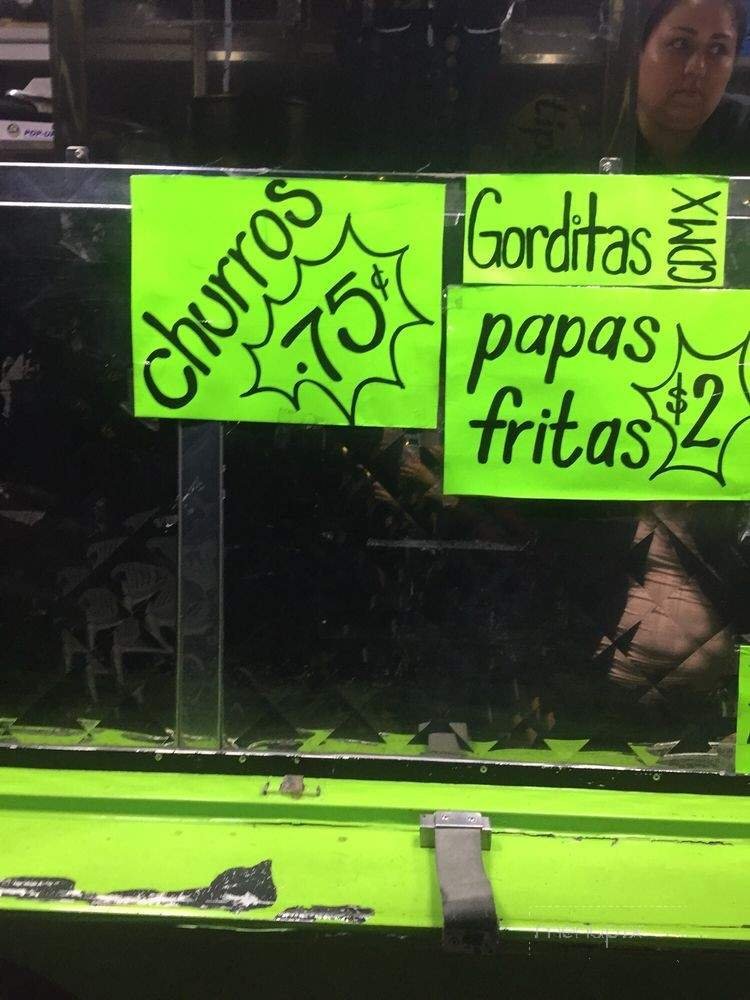 churros
.75¢
Gorditas
CDMX
papas
fritas
$2
POP-UP